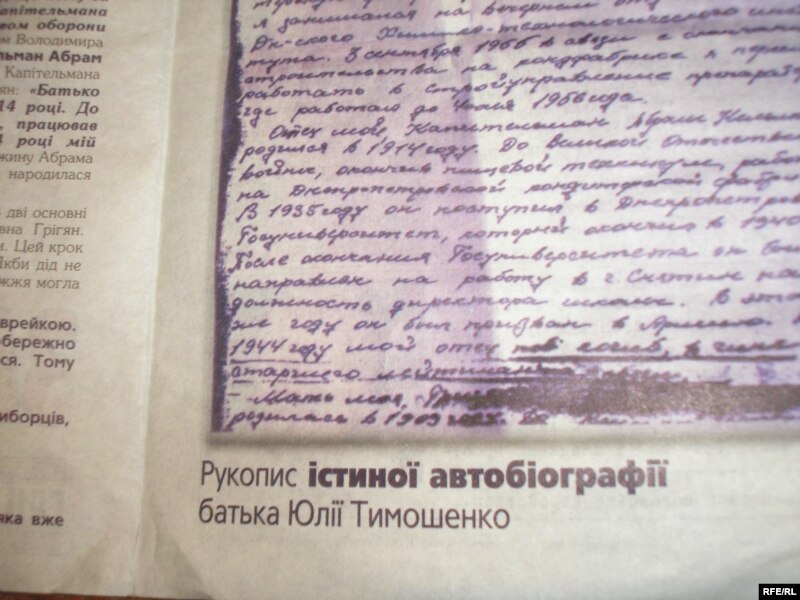 апітельмана
вом оборони
ом Володимира
льман Абрам
Капітельмана
ян: «Батько
14 році. До
, працював
4 році мій
жину Абрама
народилася
дві основні
вна Грігян.
н. Цей крок
Якби дід не
жжя могла
врейкою.
обережно
ся. Тому
иборців,
яка вже
я занимался на вечернем
Дн-ского Химико-технологического
тута. В сентябре 1955 в связи с окончан
строительства на кондфабрике я переш
работать в стройуправление
где работал до июля 1956 года.
Отец мой, Капительман Абрам
родился в 1914 году. До Великой Отечестве
войны, окончив пищевой техникум, рабо
на Днепропетровской кондитерской фабри
В 1935 году он поступил в Днепропетров
Госуниверситет, который окончил в 1940
После окончания Госуниверситета он был
направлен на работу в г. Снятин на
должность директора школы. В это
же году он был призван в Армию. В
1944 году мой отец погиб, в чине
старшего лейтенанта
Мать моя,
родилась в 1909 году. До
Рукопис істиної автобіографії
батька Юлії Тимошенко
RFE/RL